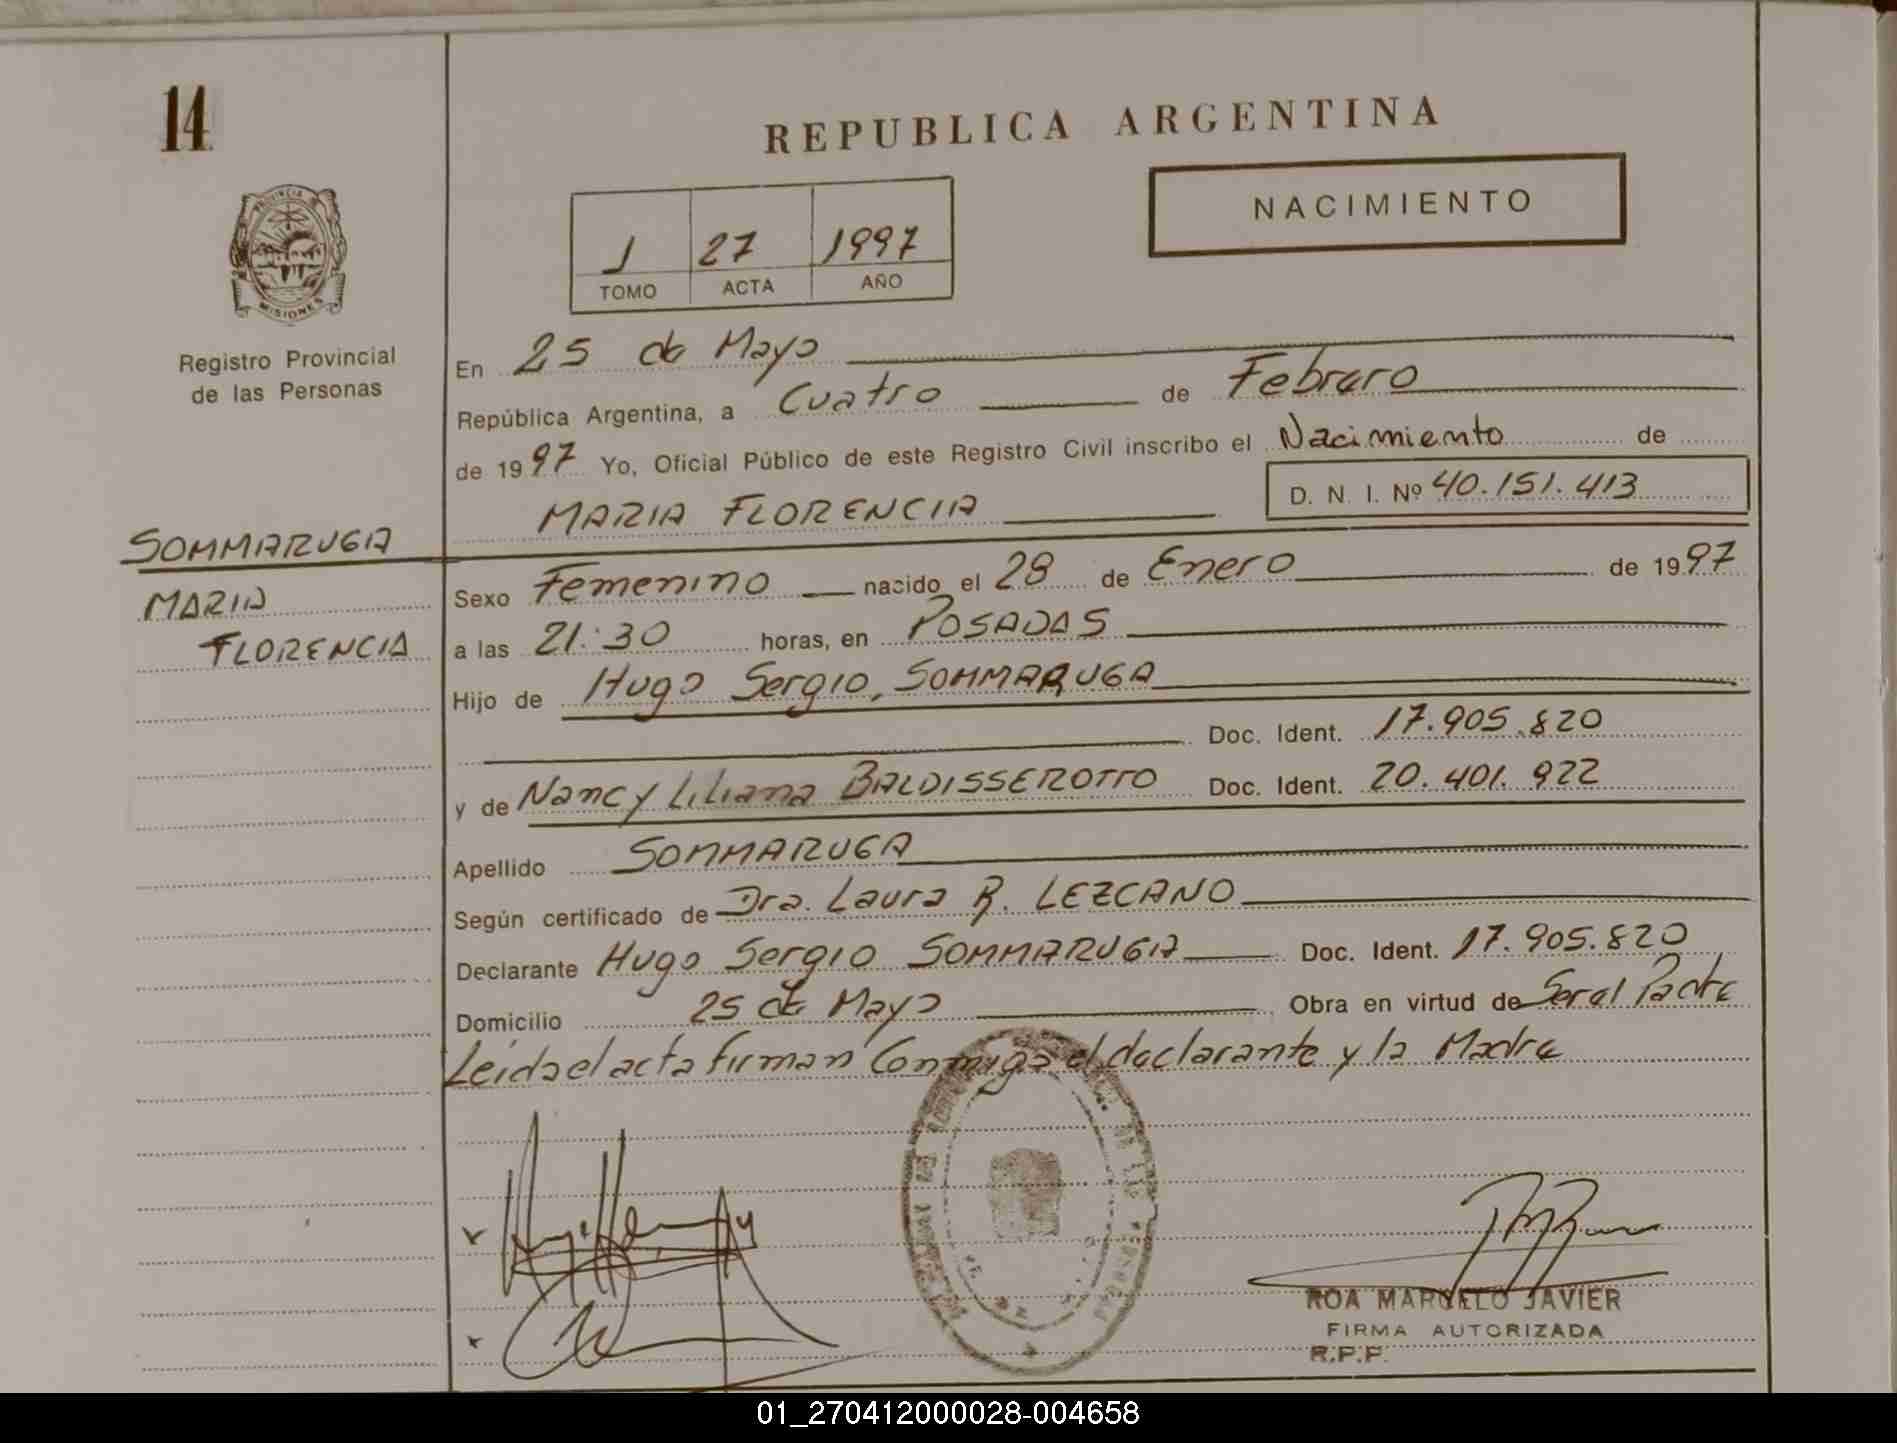 14
REPUBLICA ARGENTINA
NACIMIENTO
1 27 1997
TOMO ACTA AÑO
PROVINCIA DE
MISIONES
Registro Provincial
de las Personas
En 25 de Mayo
República Argentina, a Cuatro de Febrero
de 1997 Yo, Oficial Público de este Registro Civil inscribo el Nacimiento de
D. N. I. Nº 40.151.413
MARIA FLORENCIA
SOMMARUGA
MARIA
FLORENCIA
Sexo Femenino nacido el 28 de Enero de 1997
a las 21:30 horas, en POSADAS
Hijo de Hugo Sergio, SOMMARUGA
Doc. Ident. 17.905.820
y de Nancy Liliana BALDISSEROTTO Doc. Ident. 20.401.922
Apellido SOMMARUGA
Según certificado de Dra. Laura R. LEZCANO
Declarante Hugo Sergio SOMMARUGA Doc. Ident. 17.905.820
Domicilio 25 de Mayo Obra en virtud de Ser el Padre
Leida el acta firman Conmigo el declarante y la Madre
ROA MARCELO JAVIER
FIRMA AUTORIZADA
R.P.P.
01_270412000028-004658